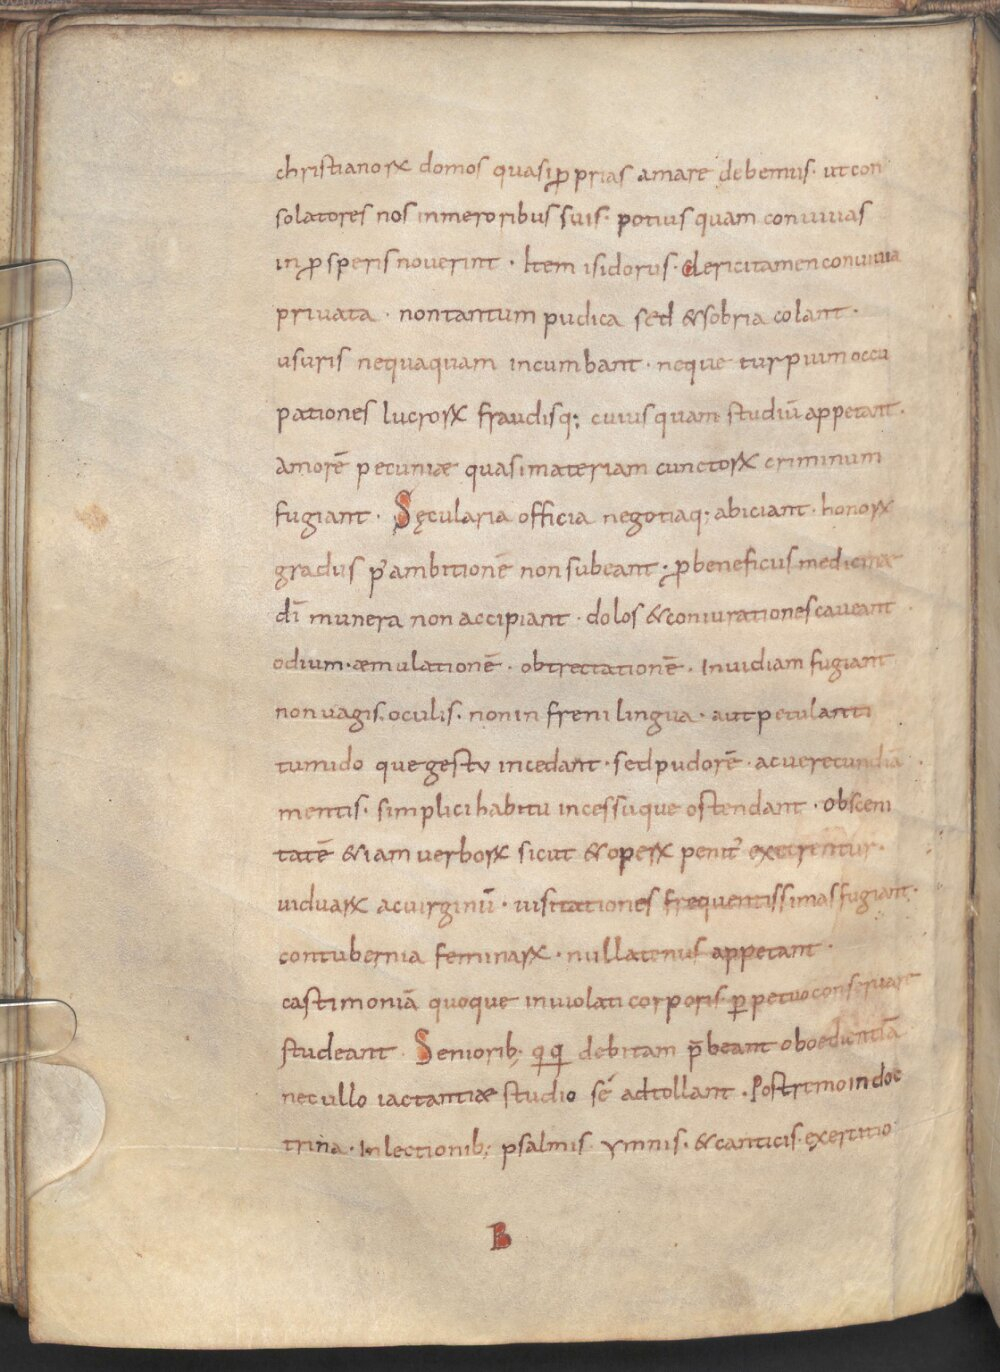 christianorꝝ domos quasi ꝓprias amare debemus · ut con
solatores nos in meroribus suis · potius quam conuiuas
in ꝓsperis nouerint · Item isidorus · Clerici tamen conuiuia
priuata · non tantum pudica sed & sobria colant ·
usuris nequaquam incumbant · neque turpium occu
pationes lucrorꝝ fraudisq; cuiusquam studiū appetant ·
amorē pecuniæ quasi materiam cunctorꝝ criminum
fugiant · Sęcularia officia negotiaq; abiciant · honorꝝ
gradus p’ ambitionē non subeant · ꝓ beneficus medicinæ
dī munera non accipiant · dolos & coniurationes caueant ·
odium · æmulationē · obtrectationē · Inuidiam fugiant
non uagis · oculis · non infreni lingua · aut petulanti
tumido que gestu incedant · sed pudorē · ac uerecundiā ·
mentis · simplici habitu incessuque ostendant · Obsceni
tatē &iam uerborꝝ sicut & operꝝ penit’ execrentur ·
uiduarꝝ ac uirginū · uisitationes frequentissimas fugiant ·
contubernia feminarꝝ · nullatenus appetant ·
castimoniā quoque inuiolati corporis · ꝑpetuo conseruare
studeant · Seniorib; qq; debitam p̄beant oboedientiā
nec ullo iactantiæ studio sé adtollant · Postremo in doc
trina · In lectionib; psalmis · ymnis · & canticis · exertitio
B